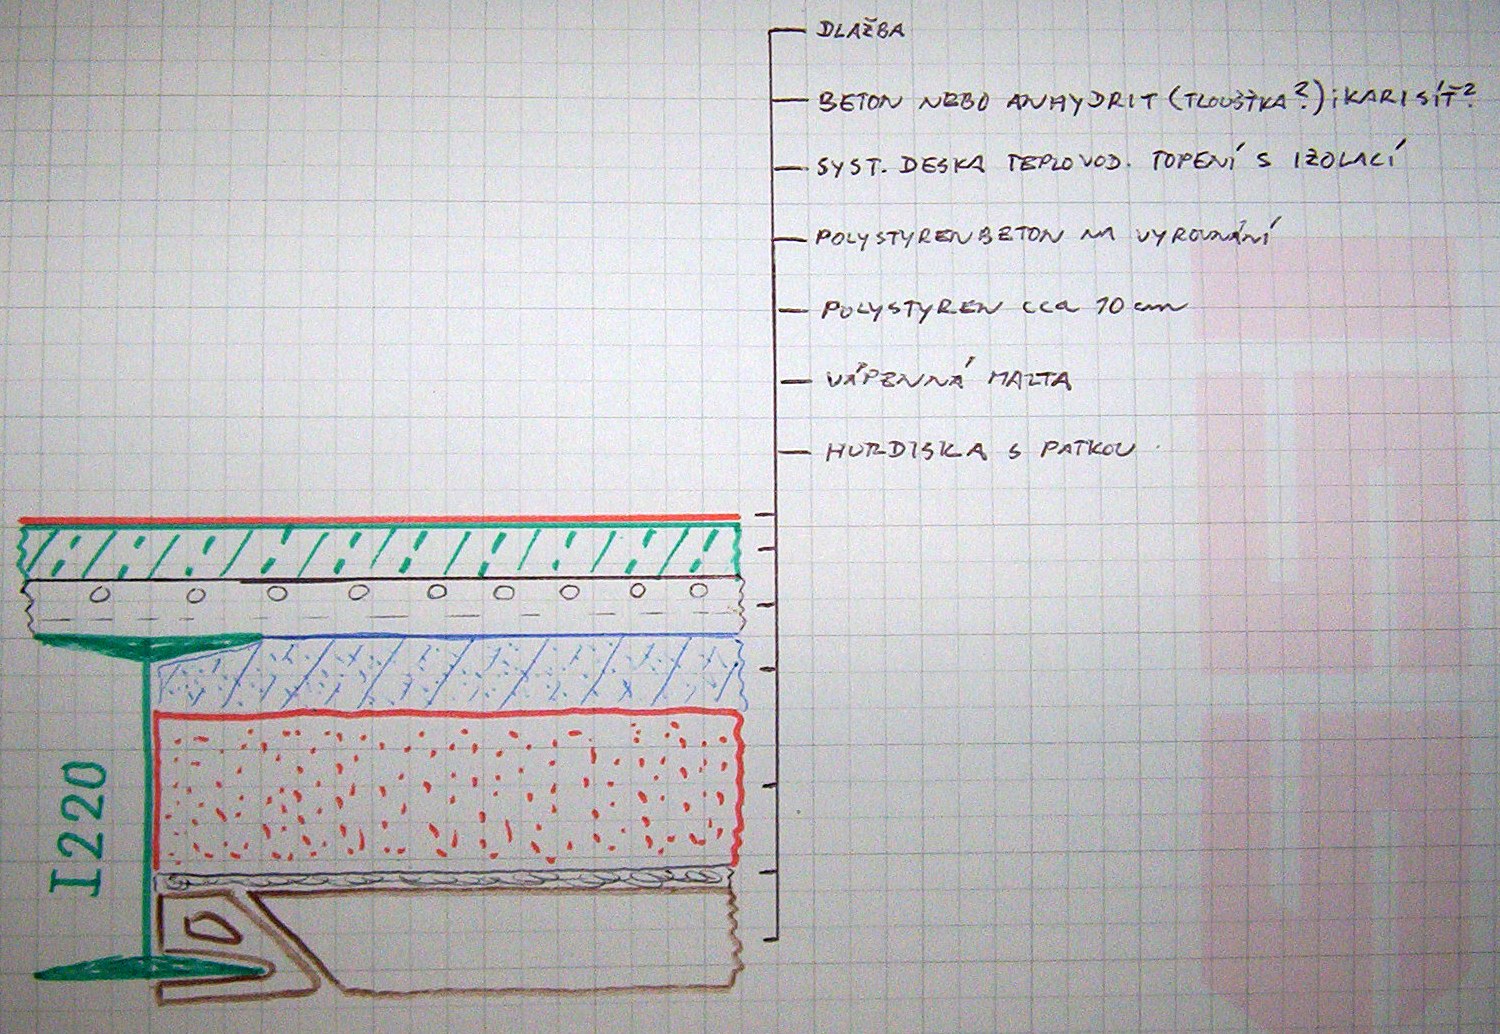 DLAŽBA
BETON NEBO ANHYDRIT (TLOUŠŤKA?) i KARI SÍŤ?
SYST. DESKA TEPLOVOD. TOPENÍ S IZOLACÍ
POLYSTYRENBETON NA VYROVNÁNÍ
POLYSTYREN cca 10 cm
VÁPENNÁ MALTA
HURDISKA S PATKOU
I220